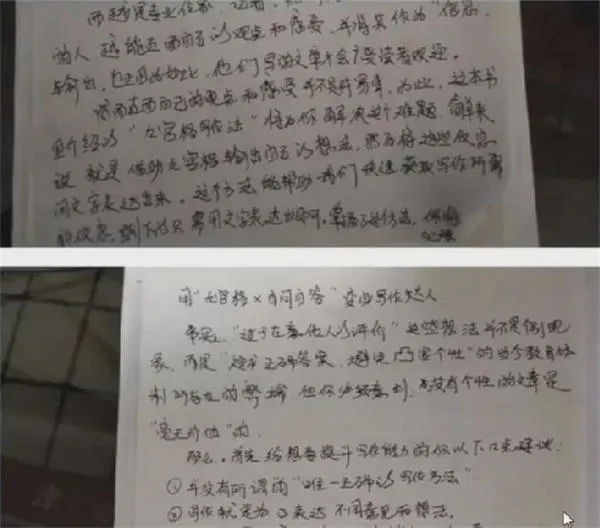 而越是专业作家、记者,
的人,越能直面自己的观点和感受,并将其作为“信息”
与输出,也正因为如此,他们写的文章才会广受读者欢迎。
然而直面自己的观点和感受并不是件易事,为此,这本书
里介绍的“九宫格写作法”将为你解决这个难题,简单来
说,就是借助九宫格输出自己的想法,然后将这些信息
用文字表达出来。这个方法能帮助我们快速获取写作所需
的信息,剩下的只需用文字表达出即可。掌握了这个方法,你将
用“九宫格×自问自答”变成写作达人
事实上,“过于在意他人的评价”这些想法并不是个别现
象,而是“追求正确答案,避免凸显个性”的当今教育体
制所存在的弊端,但你必须意识到,没有个性的文章是
“毫无价值”的。
那么,首先给想要提升写作能力的你以下几点建议:
①并没有所谓的“唯一正确的写作方法”
②写作就是为了表达不同意见和想法。